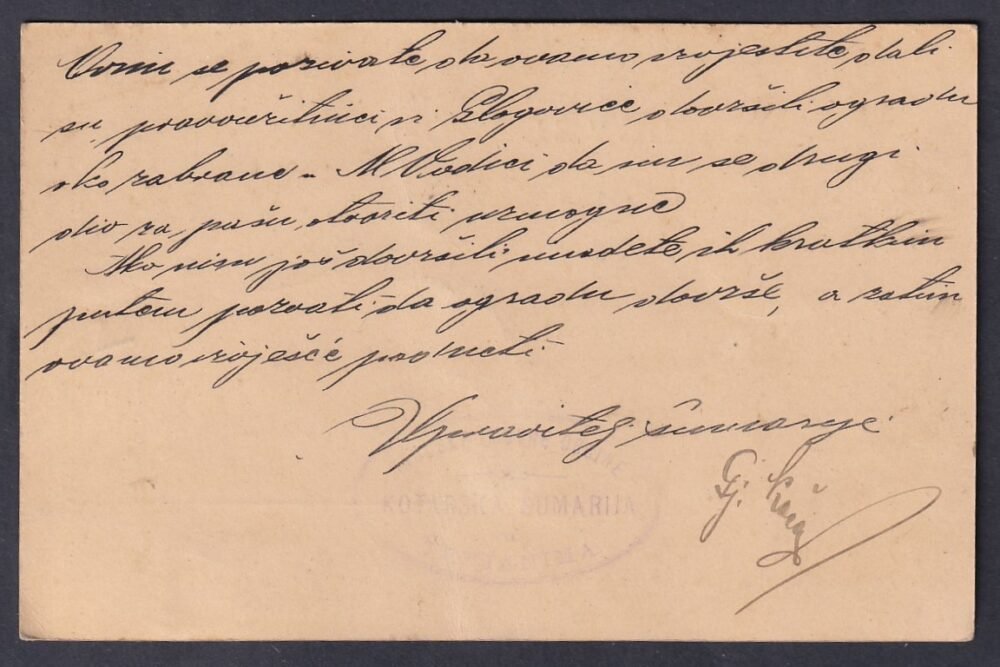 Ovim se pozivate da ovamo izvjestite dali
su pravoužitnici iz Glogovice dovršili ogradu
oko zabrane - M Vodici da im se drugi
dio za pašu otvoriti uzmogne
Ako nisu još dovršili imadete ih kratkim
putem pozvati da ogradu dovrše, a zatim
ovamo izvješće podneti.
Upravitelj šumarije
Gj.
KOTARSKA ŠUMARIJA